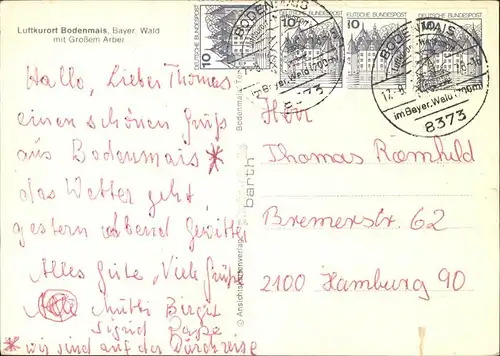 Luftkurort Bodenmais, Bayer. Wald
mit Großem Arber
Hallo, Lieber Thomas
einen schönen Gruß
aus Bodenmais *
das Wetter geht
gestern Abend Gewitter
Alles Gute, Viele Grüße
Mutti Birgit
Sigrid
* wir sind auf der Durchreise
© Ansichtskartenverlag
barth
Bodenmais
DEUTSCHE BUNDESPOST
10
DEUTSCHE BUNDESPOST
10
DEUTSCHE BUNDESPOST
10
DEUTSCHE BUNDESPOST
BODENMAIS
im Bayer. Wald (700m)
8373
BODENMAIS
17.8.
im Bayer. Wald (700m)
8373
Herr
Thomas Römhild
Bremerstr. 62
2100 Hamburg 90